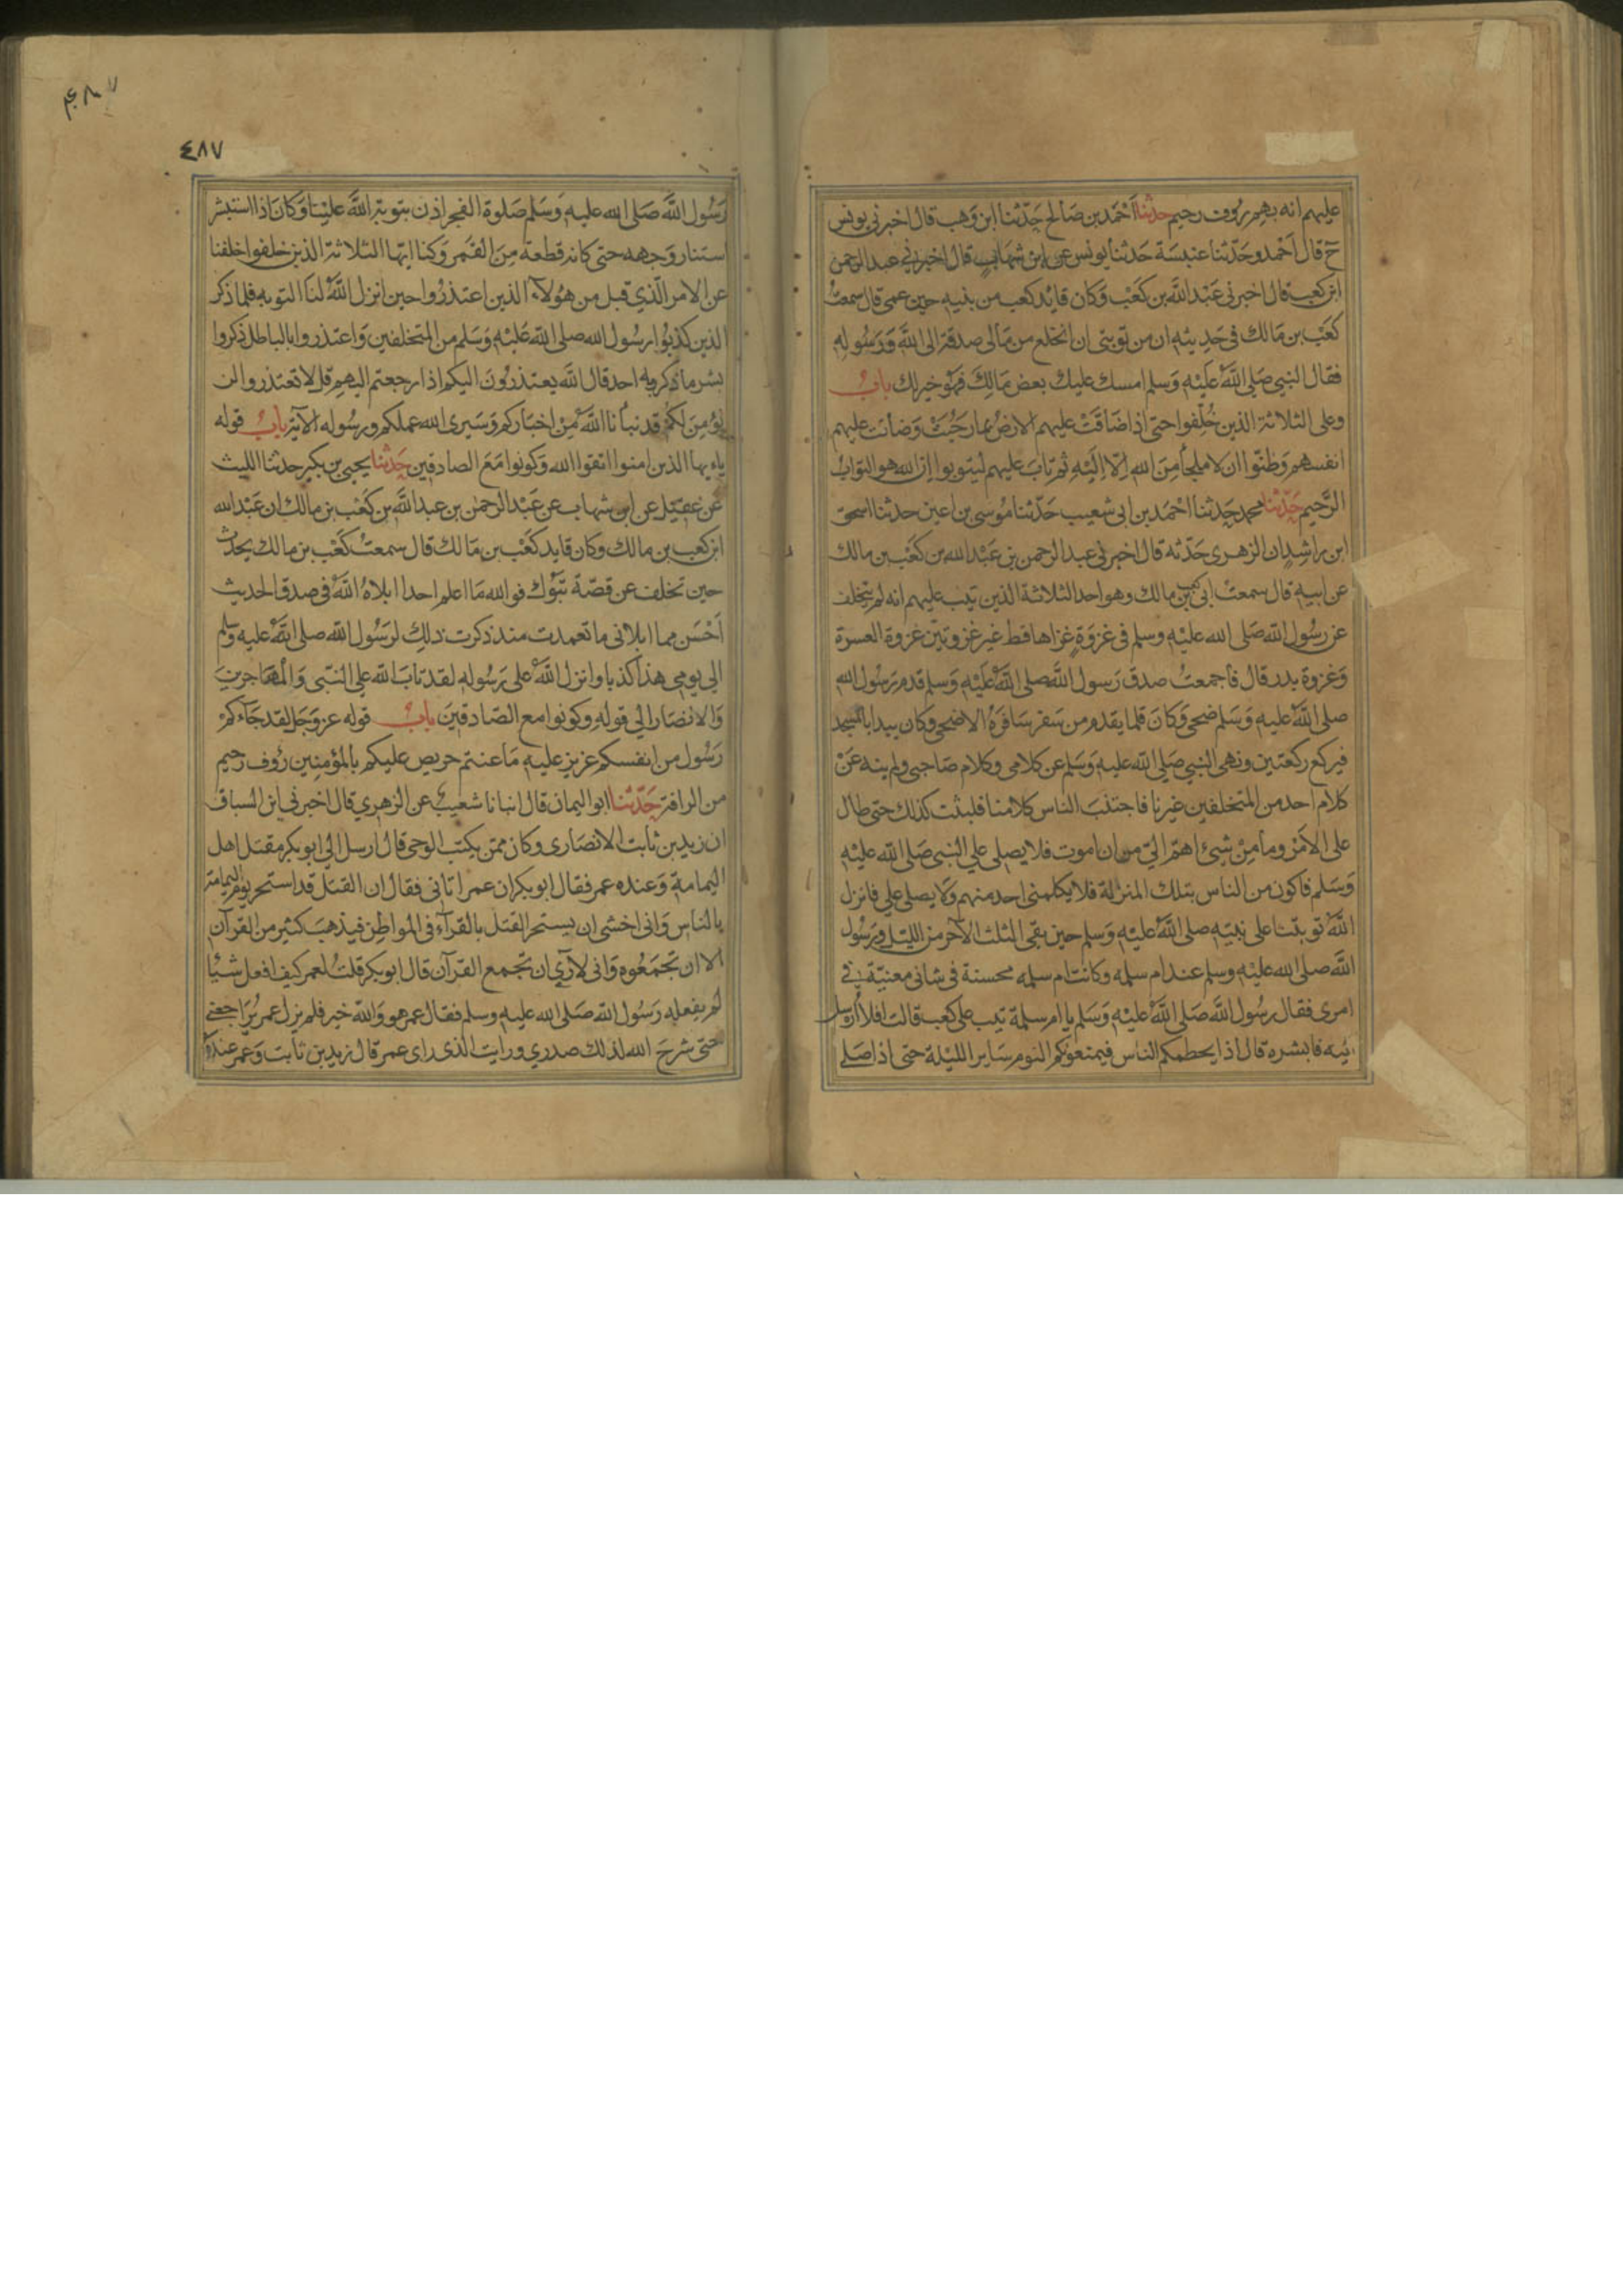 عليهم انه بهم رؤف رحيم حدثنا احمد بن صالح حدثنا ابن وهب قال اخبرني يونس
ح قال احمد وحدثنا عنبسة حدثنا يونس عن ابن شهاب قال اخبرني عبد الرحمن
ابن كعب قال اخبرني عبد الله بن كعب وكان قايد كعب من بنيه حين عمي قال سمعت
كعب بن مالك في حديثه ان من توبتي ان انخلع من مالي صدقة الى الله ورسوله
فقال النبي صلى الله عليه وسلم امسك عليك بعض مالك فهو خير لك باب
وعلى الثلاثة الذين خلفوا حتى اذا ضاقت عليهم الارض بما رحبت وضاقت عليهم
انفسهم وظنوا ان لا ملجأ من الله الا اليه ثم تاب عليهم ليتوبوا ان الله هو التواب
الرحيم حدثنا محمد حدثنا احمد بن ابي شعيب حدثنا موسى بن اعين حدثنا اسحق
ابن راشد ان الزهري حدثه قال اخبرني عبد الرحمن بن عبد الله بن كعب بن مالك
عن ابيه قال سمعت ابي كعب بن مالك وهو احد الثلاثة الذين تيب عليهم انه لم يتخلف
عن رسول الله صلى الله عليه وسلم في غزوة غزاها قط غير غزوتين غزوة العسرة
وغزوة بدر قال فأجمعت صدق رسول الله صلى الله عليه وسلم قدم رسول الله
صلى الله عليه وسلم ضحى وكان قلما يقدم من سفر سافره الا ضحى وكان يبدا بالمسجد
فيركع ركعتين ونهى النبي صلى الله عليه وسلم عن كلامي وكلام صاحبي ولم ينه عن
كلام احد من المتخلفين غيرنا فاجتنب الناس كلامنا فلبثت كذلك حتى طال
على الامر وما من شيئ اهم الي من ان اموت فلا يصلي علي النبي صلى الله عليه
وسلم فاكون من الناس بتلك المنزلة فلا يكلمني احد منهم ولا يصلي علي فانزل
الله توبتنا على نبيه صلى الله عليه وسلم حين بقي الثلث الآخر من الليل ورسول
الله صلى الله عليه وسلم عند ام سلمه وكانت ام سلمه محسنة في شاني معنية في
امري فقال رسول الله صلى الله عليه وسلم يا ام سلمة تيب على كعب قالت افلا ارسل
اليه فابشره قال اذا يحطمكم الناس فيمنعونكم النوم ساير الليلة حتى اذا صلى
٤٨٧
٤٨٧
رسول الله صلى الله عليه وسلم صلوة الفجر اذن بتوبة الله علينا وكان اذا استبشر
استنار وجهه حتى كانه قطعة من القمر وكنا ايها الثلاثة الذين خلفوا خلفنا
عن الامر الذي قبل من هؤلاء الذين اعتذروا حين انزل الله لنا التوبه فلما ذكر
الذين كذبوا رسول الله صلى الله عليه وسلم من المتخلفين واعتذروا بالباطل ذكروا
بشر ما ذكر به احد قال الله يعتذرون اليكم اذا رجعتم اليهم قل لا تعتذروا لن
نؤمن لكم قد نبأنا الله من اخباركم وسيرى الله عملكم ورسوله الآية باب قوله
ياءيها الذين امنوا اتقوا الله وكونوا مع الصادقين حدثنا يحيى بن بكير حدثنا الليث
عن عقيل عن ابن شهاب عن عبد الرحمن بن عبد الله بن كعب بن مالك ان عبد الله
ابن كعب بن مالك وكان قايد كعب بن مالك قال سمعت كعب بن مالك يحدث
حين تخلف عن قصة تبوك فوالله ما اعلم احدا ابلاه الله في صدق الحديث
احسن مما ابلاني ما تعمدت منذ ذكرت ذلك لرسول الله صلى الله عليه وسلم
الى يومي هذا كذبا وانزل الله على رسوله لقد تاب الله على النبي والمهاجرين
والانصار الى قوله وكونوا مع الصادقين باب قوله عز وجل لقد جآءكم
رسول من انفسكم عزيز عليه ما عنتم حريص عليكم بالمؤمنين رؤف رحيم
من الرافة حدثنا ابو اليمان قال انبانا شعيب عن الزهري قال اخبرني ابن السباق
ان زيد بن ثابت الانصاري وكان ممن يكتب الوحي قال ارسل الي ابو بكر مقتل اهل
اليمامة وعنده عمر فقال ابو بكر ان عمر اتاني فقال ان القتل قد استحر يوم اليمامة
بالناس واني اخشى ان يستحر القتل بالقرآء في المواطن فيذهب كثير من القرآن
الا ان تجمعوه واني لارى ان تجمع القرآن قال ابو بكر قلت لعمر كيف افعل شيئا
لم يفعله رسول الله صلى الله عليه وسلم فقال عمر هو والله خير فلم يزل عمر يراجعني
حتى شرح الله لذلك صدري ورايت الذي راى عمر قال زيد بن ثابت وعمر عنده